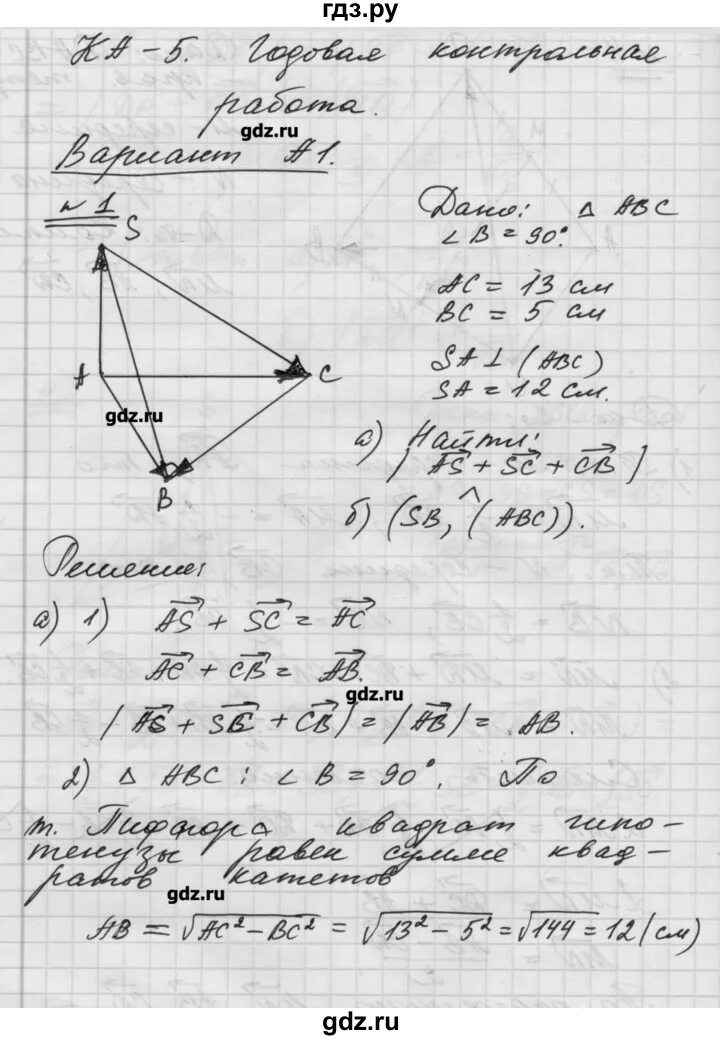 гдз.ру
КА-5. Годовая контрольная
работа.
gdz.ru
Вариант А1.
№1
S
A
C
B
gdz.ru
Дано: △ ABC
∠B = 90°.
AC = 13 см
BC = 5 см
SA ⊥ (ABC)
SA = 12 см.
а) Найти:
|AS + SC + CB|
б) (SB, ^(ABC)).
Решение:
а) 1) AS + SC = AC
AC + CB = AB.
gdz.ru
|AS + SC + CB| = |AB| = AB.
2) △ ABC: ∠B = 90°. По
т. Пифагора квадрат гипо-
тенузы равен сумме квад-
ратов катетов
gdz.ru
AB = √AC² - BC² = √13² - 5² = √144 = 12 (см)
gdz.ru